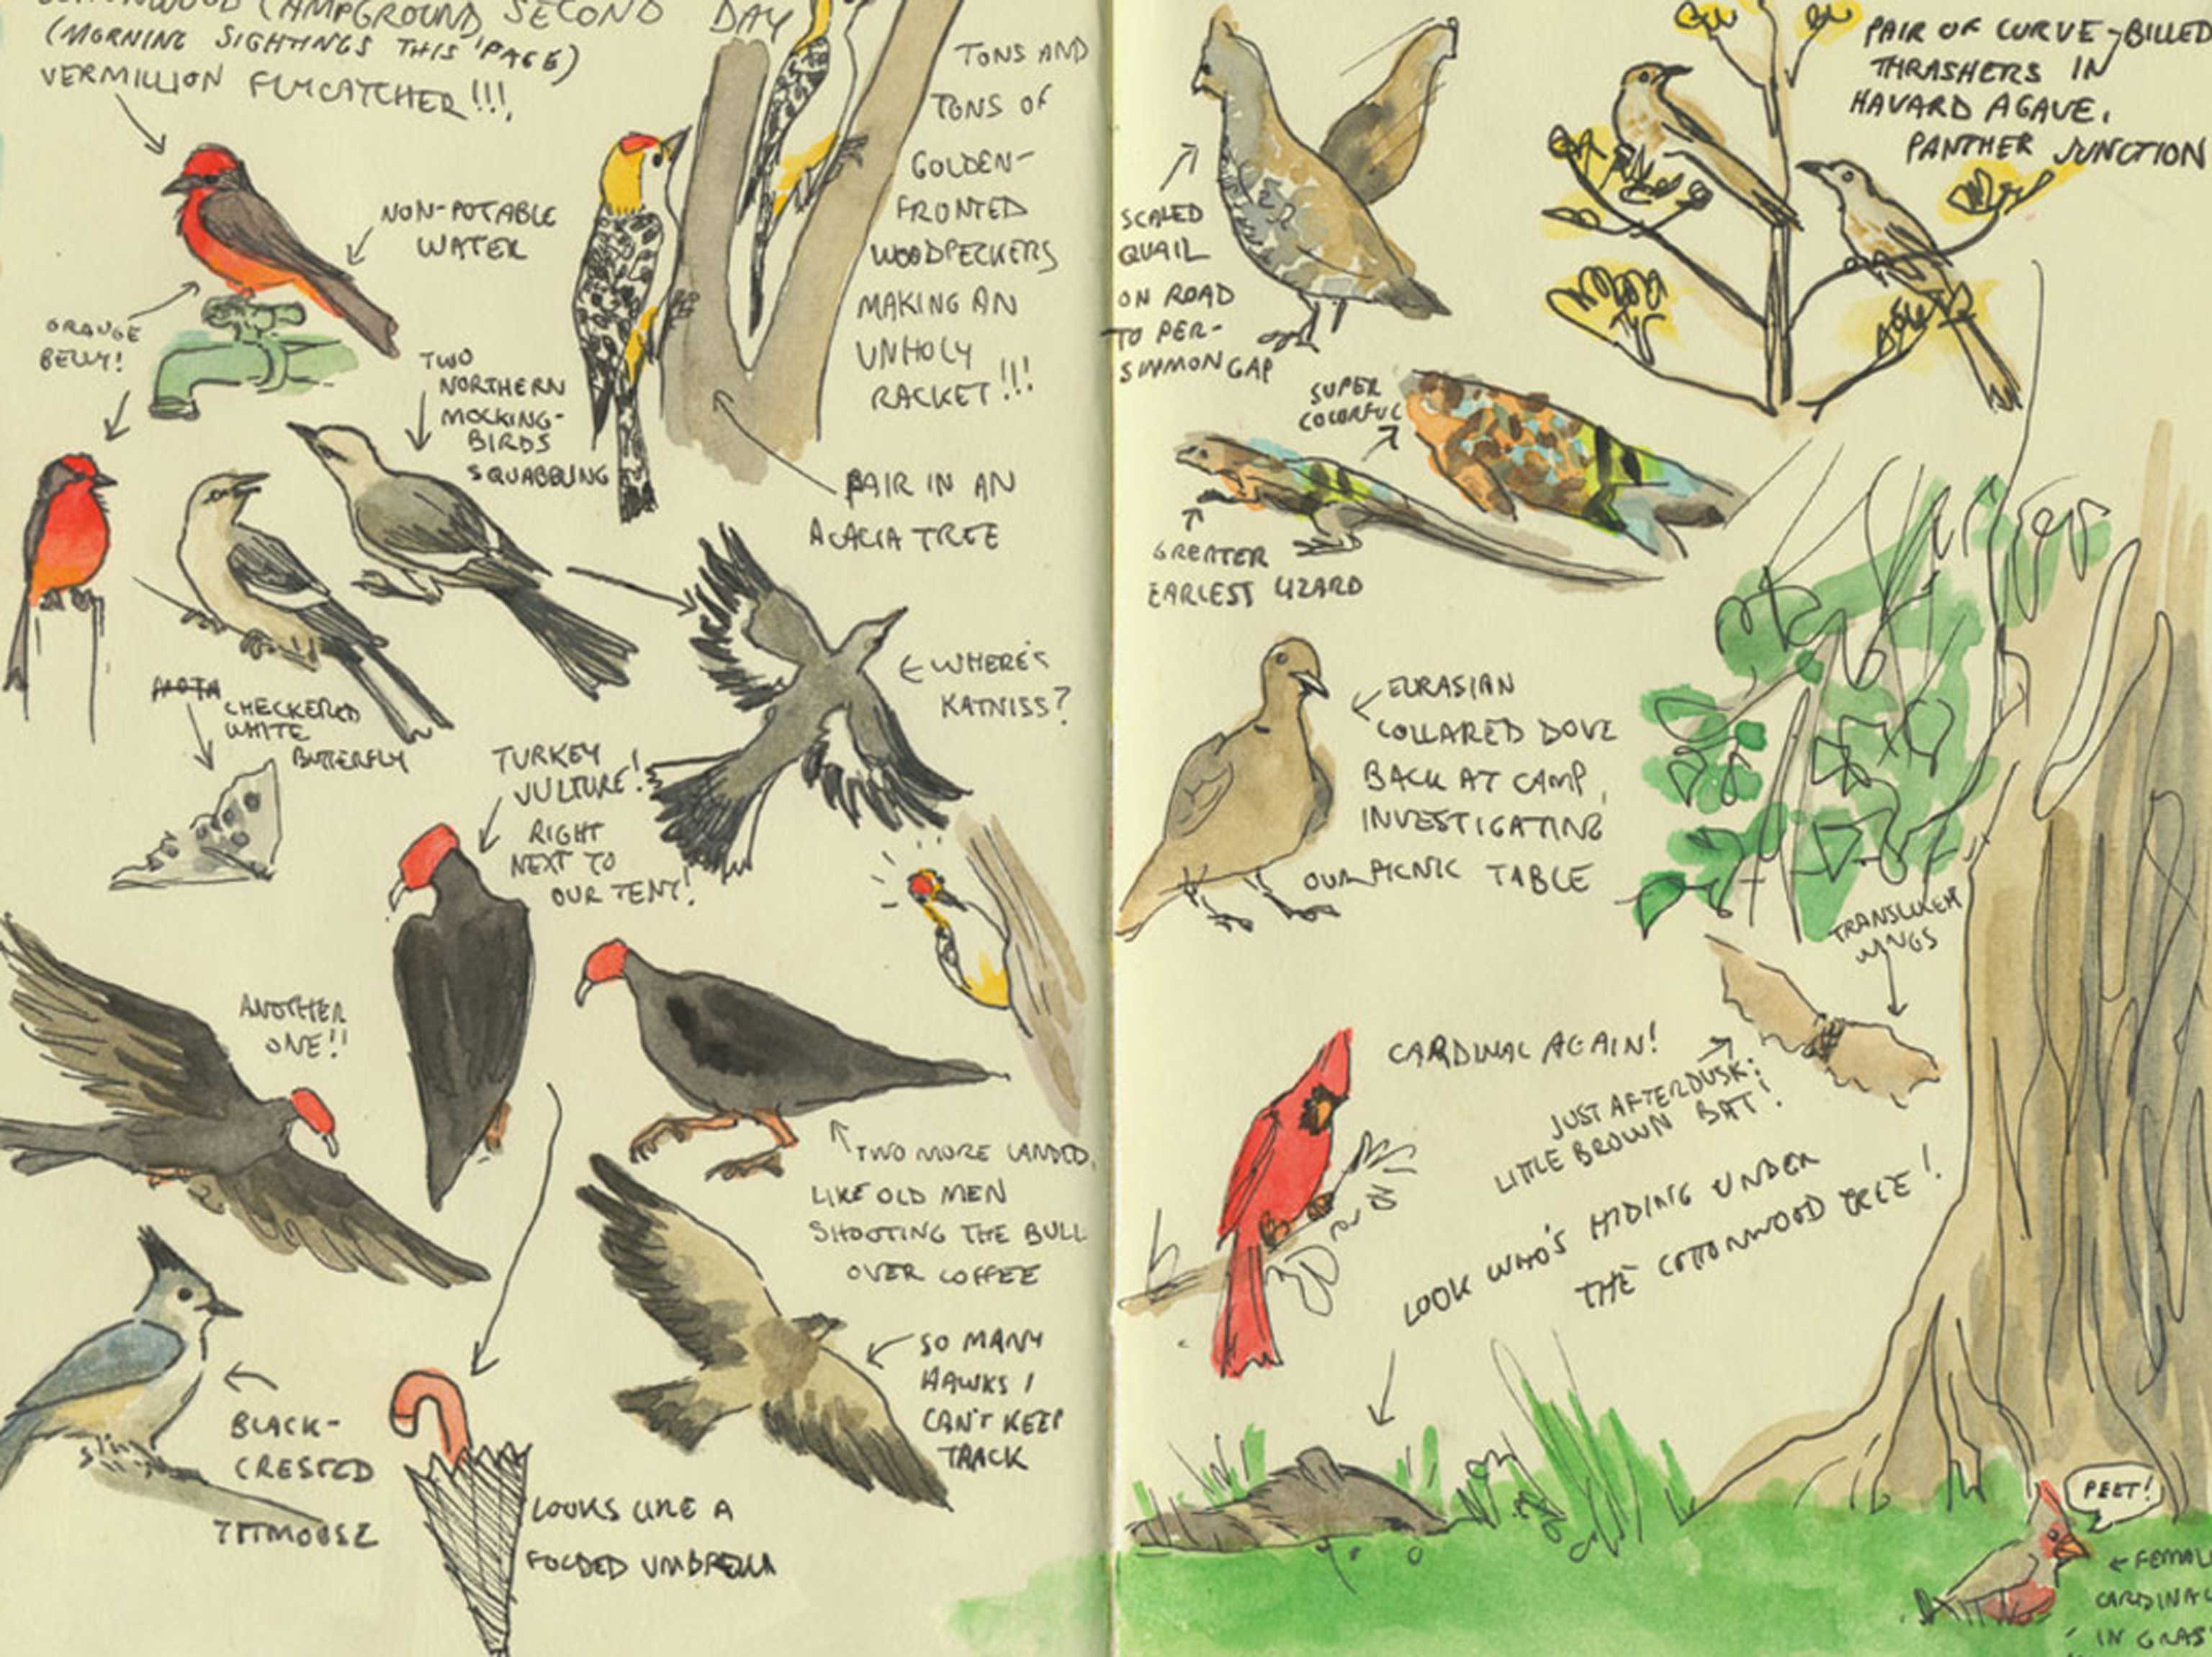 CAMPGROUND SECOND DAY
(MORNING SIGHTINGS THIS PAGE)
VERMILLION FLYCATCHER!!!
NON-POTABLE
WATER
ORANGE
BELLY!
TWO
NORTHERN
MOCKING-
BIRDS
SQUABBLING
TONS AND
TONS OF
GOLDEN-
FRONTED
WOODPECKERS
MAKING AN
UNHOLY
RACKET!!!
PAIR IN AN
ACACIA TREE
WHERE'S
KATNISS?
CHECKERED
WHITE
BUTTERFLY
TURKEY
VULTURE!
RIGHT
NEXT TO
OUR TENT!
ANOTHER
ONE!!
TWO MORE LANDED,
LIKE OLD MEN
SHOOTING THE BULL
OVER COFFEE
BLACK-
CRESTED
TITMOUSE
LOOKS LIKE A
FOLDED UMBRELLA
SO MANY
HAWKS I
CAN'T KEEP
TRACK
SCALED
QUAIL
ON ROAD
TO PER-
SIMMON GAP
PAIR OF CURVE-BILLED
THRASHERS IN
HAVARD AGAVE,
PANTHER JUNCTION
SUPER
COLORFUL
GREATER
EARLESS LIZARD
EURASIAN
COLLARED DOVE
BACK AT CAMP,
INVESTIGATING
OUR PICNIC TABLE
TRANSLUCENT
WINGS
CARDINAL AGAIN!
JUST AFTER DUSK:
LITTLE BROWN BAT!
LOOK WHO'S HIDING UNDER
THE COTTONWOOD TREE!
PEET!
FEMALE
CARDINAL
IN GRASS